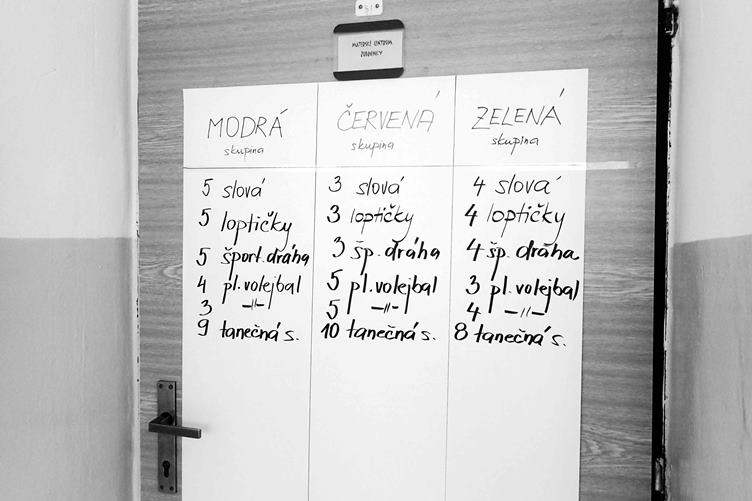 MATERSKÉ CENTRUM
ZUBRIENKY
MODRÁ
skupina
5 slová
5 loptičky
5 šport. dráha
4 pl. volejbal
3 -//-
9 tanečná s.
ČERVENÁ
skupina
3 slová
3 loptičky
3 šp. dráha
5 pl. volejbal
5 -//-
10 tanečná s.
ZELENÁ
skupina
4 slová
4 loptičky
4 šp. dráha
3 pl. volejbal
4 -//-
8 tanečná s.